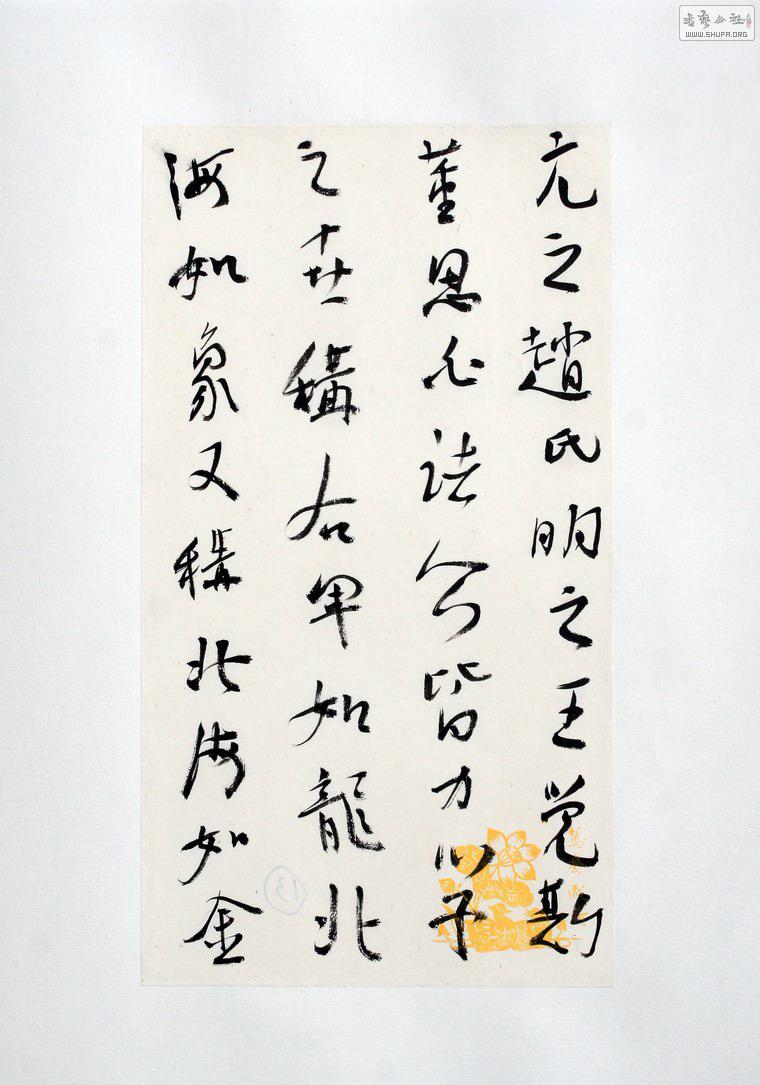 元之趙氏明之王覺斯
董思白诸公皆力子
之世稱右軍如龍北
海如象又稱北海如金
13
書藝公社
WWW.SHUFA.ORG